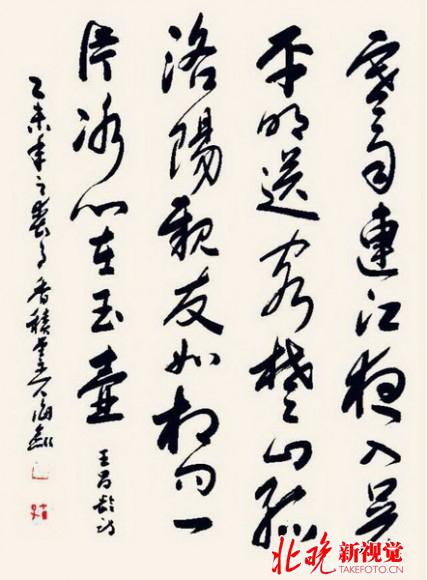 寒雨連江夜入吴
平明送客楚山孤
洛陽親友如相问一
片冰心在玉壺
王昌龄诗
乙未年之 月 香積
北晚新视觉
TAKEFOTO.CN